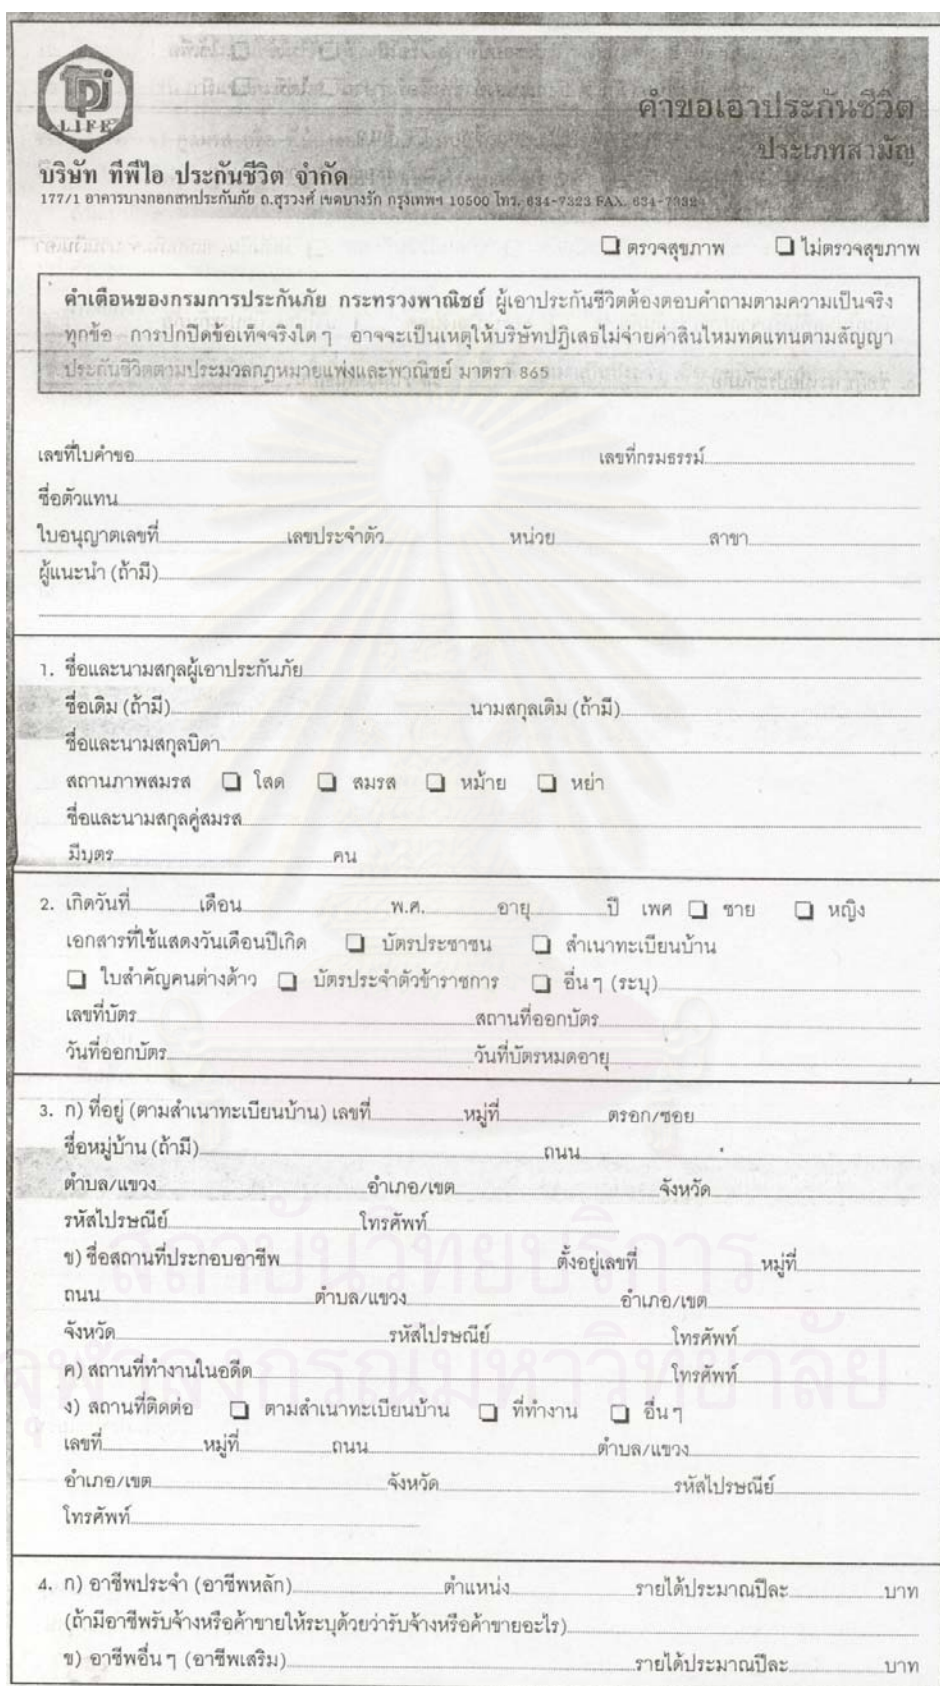 tpi
LIFE
คำขอเอาประกันชีวิต
ประเภทสามัญ
บริษัท ทีพีไอ ประกันชีวิต จำกัด
177/1 อาคารบางกอกสหประกันภัย ถ.สุรวงศ์ เขตบางรัก กรุงเทพฯ 10500 โทร. 634-7323 FAX. 634-7332
❏ ตรวจสุขภาพ ❏ ไม่ตรวจสุขภาพ
คำเตือนของกรมการประกันภัย กระทรวงพาณิชย์ ผู้เอาประกันชีวิตต้องตอบคำถามตามความเป็นจริง
ทุกข้อ การปกปิดข้อเท็จจริงใด ๆ อาจจะเป็นเหตุให้บริษัทปฏิเสธไม่จ่ายค่าสินไหมทดแทนตามสัญญา
ประกันชีวิตตามประมวลกฎหมายแพ่งและพาณิชย์ มาตรา 865
เลขที่ใบคำขอ เลขที่กรมธรรม์
ชื่อตัวแทน
ใบอนุญาตเลขที่ เลขประจำตัว หน่วย สาขา
ผู้แนะนำ (ถ้ามี)
1. ชื่อและนามสกุลผู้เอาประกันภัย
ชื่อเดิม (ถ้ามี) นามสกุลเดิม (ถ้ามี)
ชื่อและนามสกุลบิดา
สถานภาพสมรส ❏ โสด ❏ สมรส ❏ หม้าย ❏ หย่า
ชื่อและนามสกุลคู่สมรส
มีบุตร คน
2. เกิดวันที่ เดือน พ.ศ. อายุ ปี เพศ ❏ ชาย ❏ หญิง
เอกสารที่ใช้แสดงวันเดือนปีเกิด ❏ บัตรประชาชน ❏ สำเนาทะเบียนบ้าน
❏ ใบสำคัญคนต่างด้าว ❏ บัตรประจำตัวข้าราชการ ❏ อื่น ๆ (ระบุ)
เลขที่บัตร สถานที่ออกบัตร
วันที่ออกบัตร วันที่บัตรหมดอายุ
3. ก) ที่อยู่ (ตามสำเนาทะเบียนบ้าน) เลขที่ หมู่ที่ ตรอก/ซอย
ชื่อหมู่บ้าน (ถ้ามี) ถนน
ตำบล/แขวง อำเภอ/เขต จังหวัด
รหัสไปรษณีย์ โทรศัพท์
ข) ชื่อสถานที่ประกอบอาชีพ ตั้งอยู่เลขที่ หมู่ที่
ถนน ตำบล/แขวง อำเภอ/เขต
จังหวัด รหัสไปรษณีย์ โทรศัพท์
ค) สถานที่ทำงานในอดีต โทรศัพท์
ง) สถานที่ติดต่อ ❏ ตามสำเนาทะเบียนบ้าน ❏ ที่ทำงาน ❏ อื่น ๆ
เลขที่ หมู่ที่ ถนน ตำบล/แขวง
อำเภอ/เขต จังหวัด รหัสไปรษณีย์
โทรศัพท์
4. ก) อาชีพประจำ (อาชีพหลัก) ตำแหน่ง รายได้ประมาณปีละ บาท
(ถ้ามีอาชีพรับจ้างหรือค้าขายให้ระบุด้วยว่ารับจ้างหรือค้าขายอะไร)
ข) อาชีพอื่น ๆ (อาชีพเสริม) รายได้ประมาณปีละ บาท
สถาบันวิทยบริการ
จุฬาลงกรณ์มหาวิทยาลัย